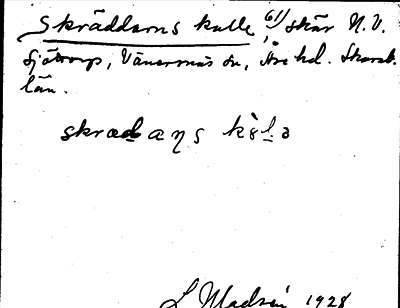 Skräddarns kulle, 61) skär N.V.
Sjötorp, Vänernäs sn, Åse hd. Skarab.
län.
skradaŋs kolə
L Madsén 1928